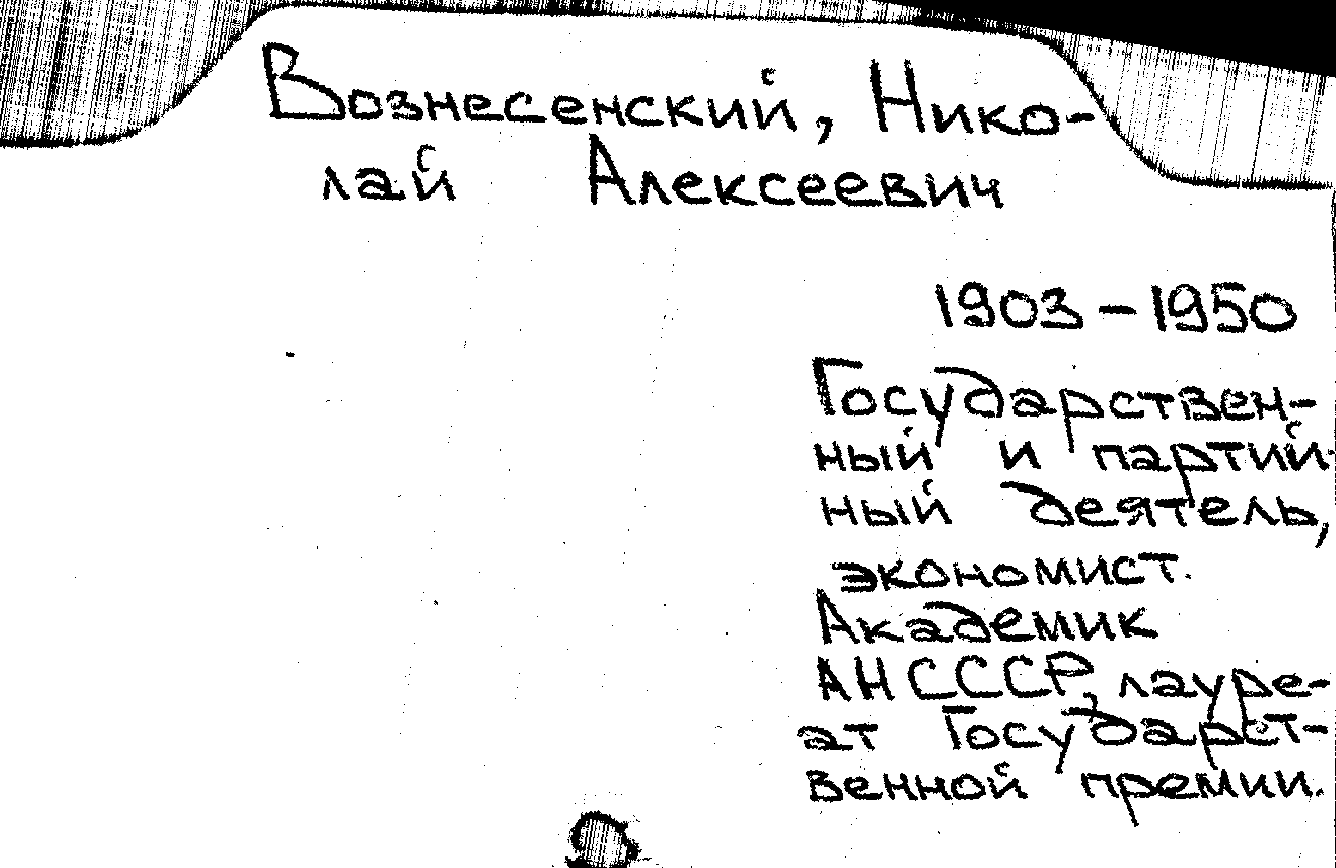 Вознесенский, Нико-
лай Алексеевич
1903-1950
Государствен-
ный и партий-
ный деятель,
экономист.
Академик
АН СССР, лауре-
ат Государст-
венной премии.